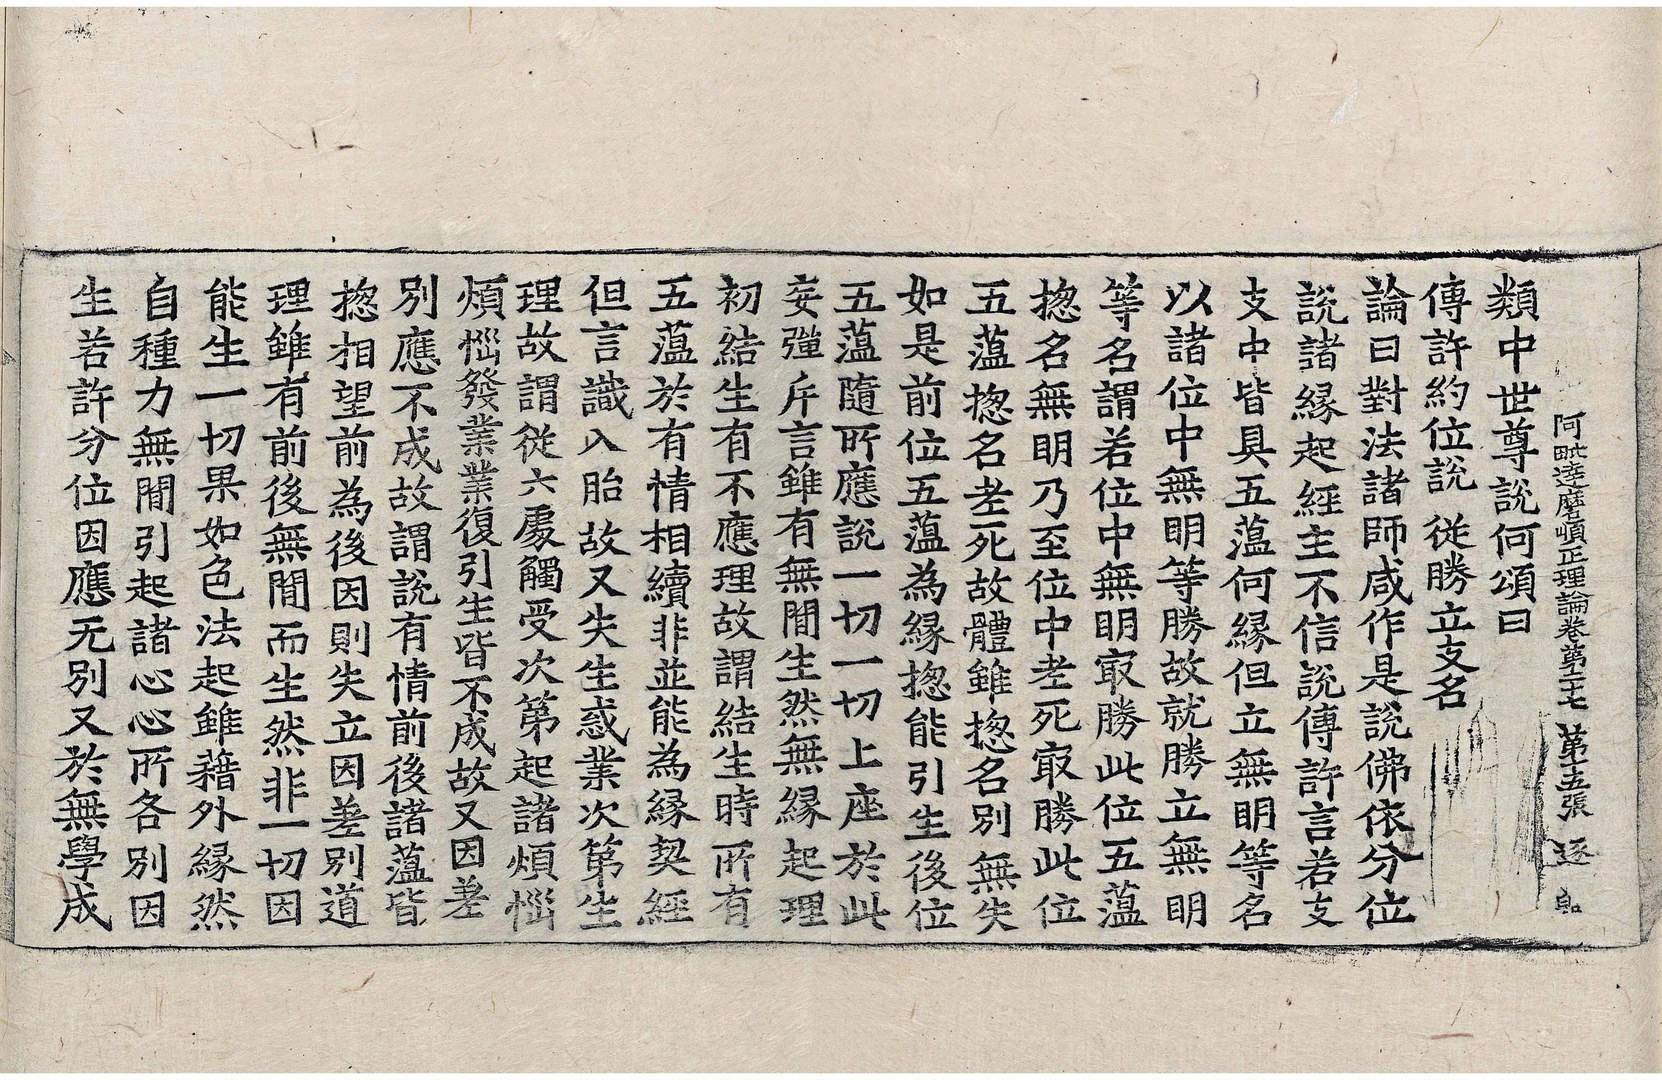 阿毗達磨順正理論卷第二十七 第五張 逐
類中世尊說何頌曰
傳許約位說 從勝立支名
論曰對法諸師咸作是說佛依分位
說諸緣起經主不信說傳許言若支
支中皆具五蘊何緣但立無明等名
以諸位中無明等勝故就勝立無明
等名謂若位中無明㝡勝此位五蘊
揔名無明乃至位中老死㝡勝此位
五蘊揔名老死故體雖揔名別無失
如是前位五蘊為緣揔能引生後位
五蘊隨所應說一切一切上座於此
妄彈斥言雖有無間生然無緣起理
初結生有不應理故謂結生時所有
五蘊於有情相續非並能為緣契經
但言識入胎故又失生惑業次第生
理故謂從六處觸受次第起諸煩惱
煩惱發業業復引生皆不成故又因差
別應不成故謂說有情前後諸蘊皆
揔相望前為後因則失立因差別道
理雖有前後無間而生然非一切因
能生一切果如色法起雖藉外緣然
自種力無間引起諸心心所各別因
生若許分位因應无別又於無學成